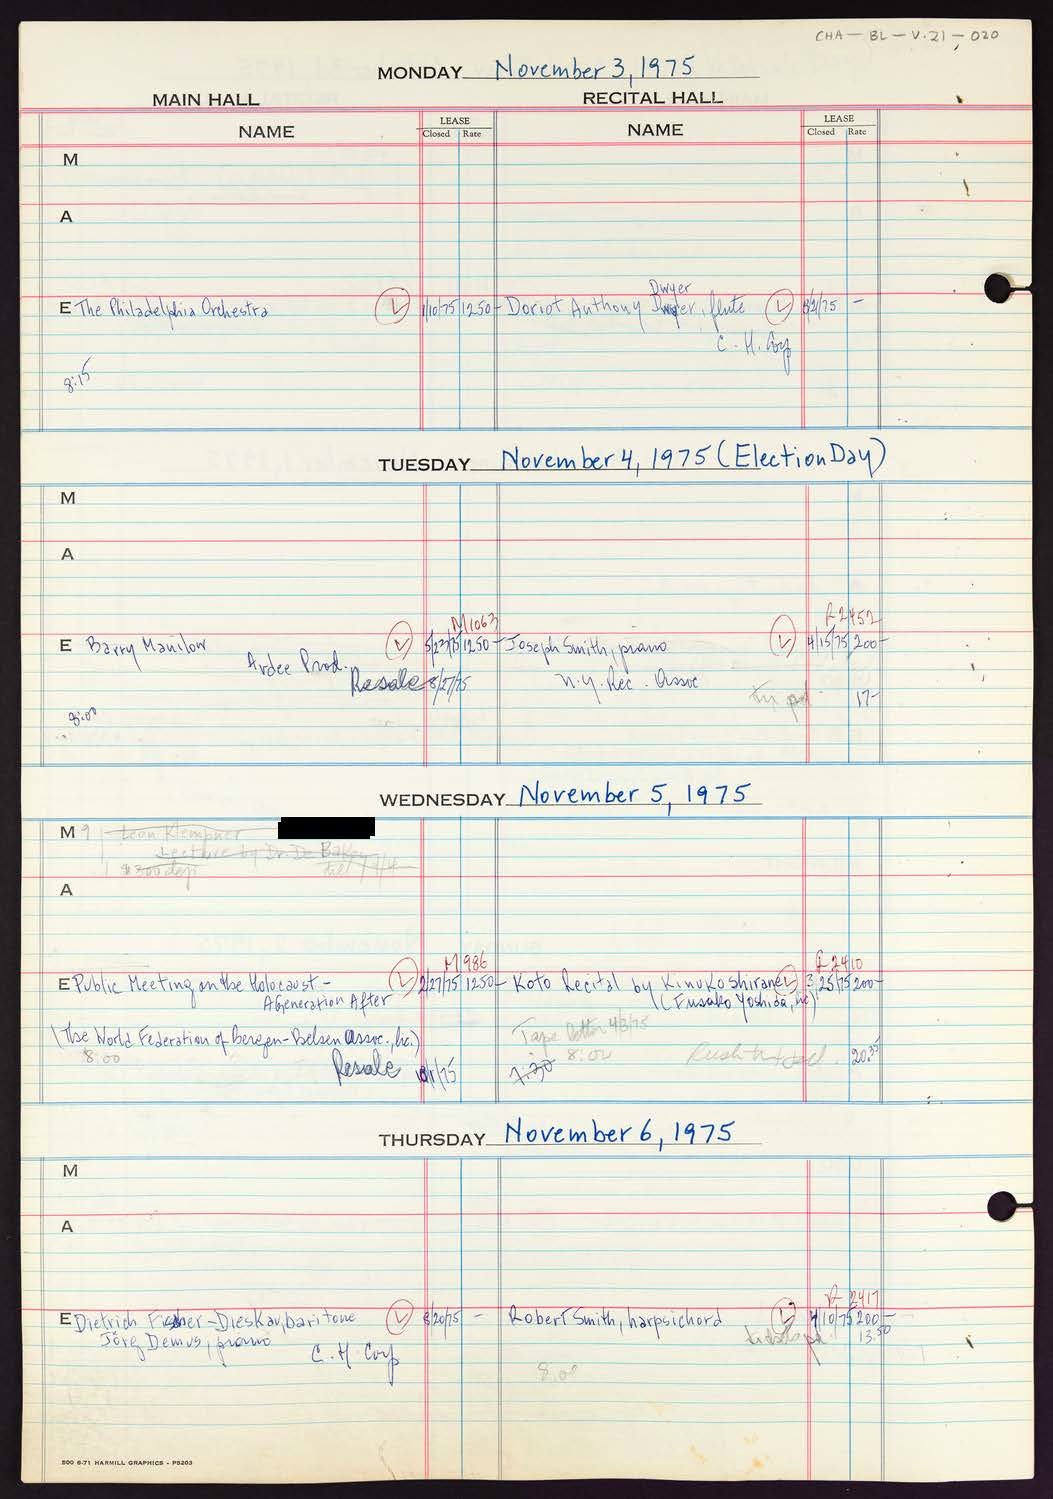 CHA-BL-V.21-020
MONDAY November 3, 1975
MAIN HALL RECITAL HALL
NAME LEASE Closed Rate NAME LEASE Closed Rate
M
A
Dwyer
E The Philadelphia Orchestra L 1/10/75 1250- Doriot Anthony Dwyer, flute L 5/2/75 -
C. H. Corp
8:15
TUESDAY November 4, 1975 (Election Day)
M
A
M1063 R2452
E Barry Manilow L 5/23/75 1250- Joseph Smith, piano L 4/15/75 200-
Ardee Prod.
Resale 8/27/75 N.Y. Rec. Assoc
pd. 17-
8:00
WEDNESDAY November 5, 1975
M 9 Leon Klempner
Lecture by Dr. De Bakey
$300 dep till 7/4
A
M986 R2410
E Public Meeting on the Holocaust - L 2/27/75 1250- Koto Recital by Kinuko Shirane L 3/25/75 200-
A Generation After (Fusako Yoshida, Inc)
(The World Federation of Bergen-Belsen Assoc., Inc.) Tape 4/3/75
8:00 8:00 20.35
Resale 10/1/75 7:30
THURSDAY November 6, 1975
M
A
R 2417
E Dietrich Fischer-Dieskau, baritone L 3/20/75 - Robert Smith, harpsichord L 4/10/75 200-
Jörg Demus, piano tickets pd. 13.50
C. H. Corp
8:00
500 6-71 HARMILL GRAPHICS - P5203